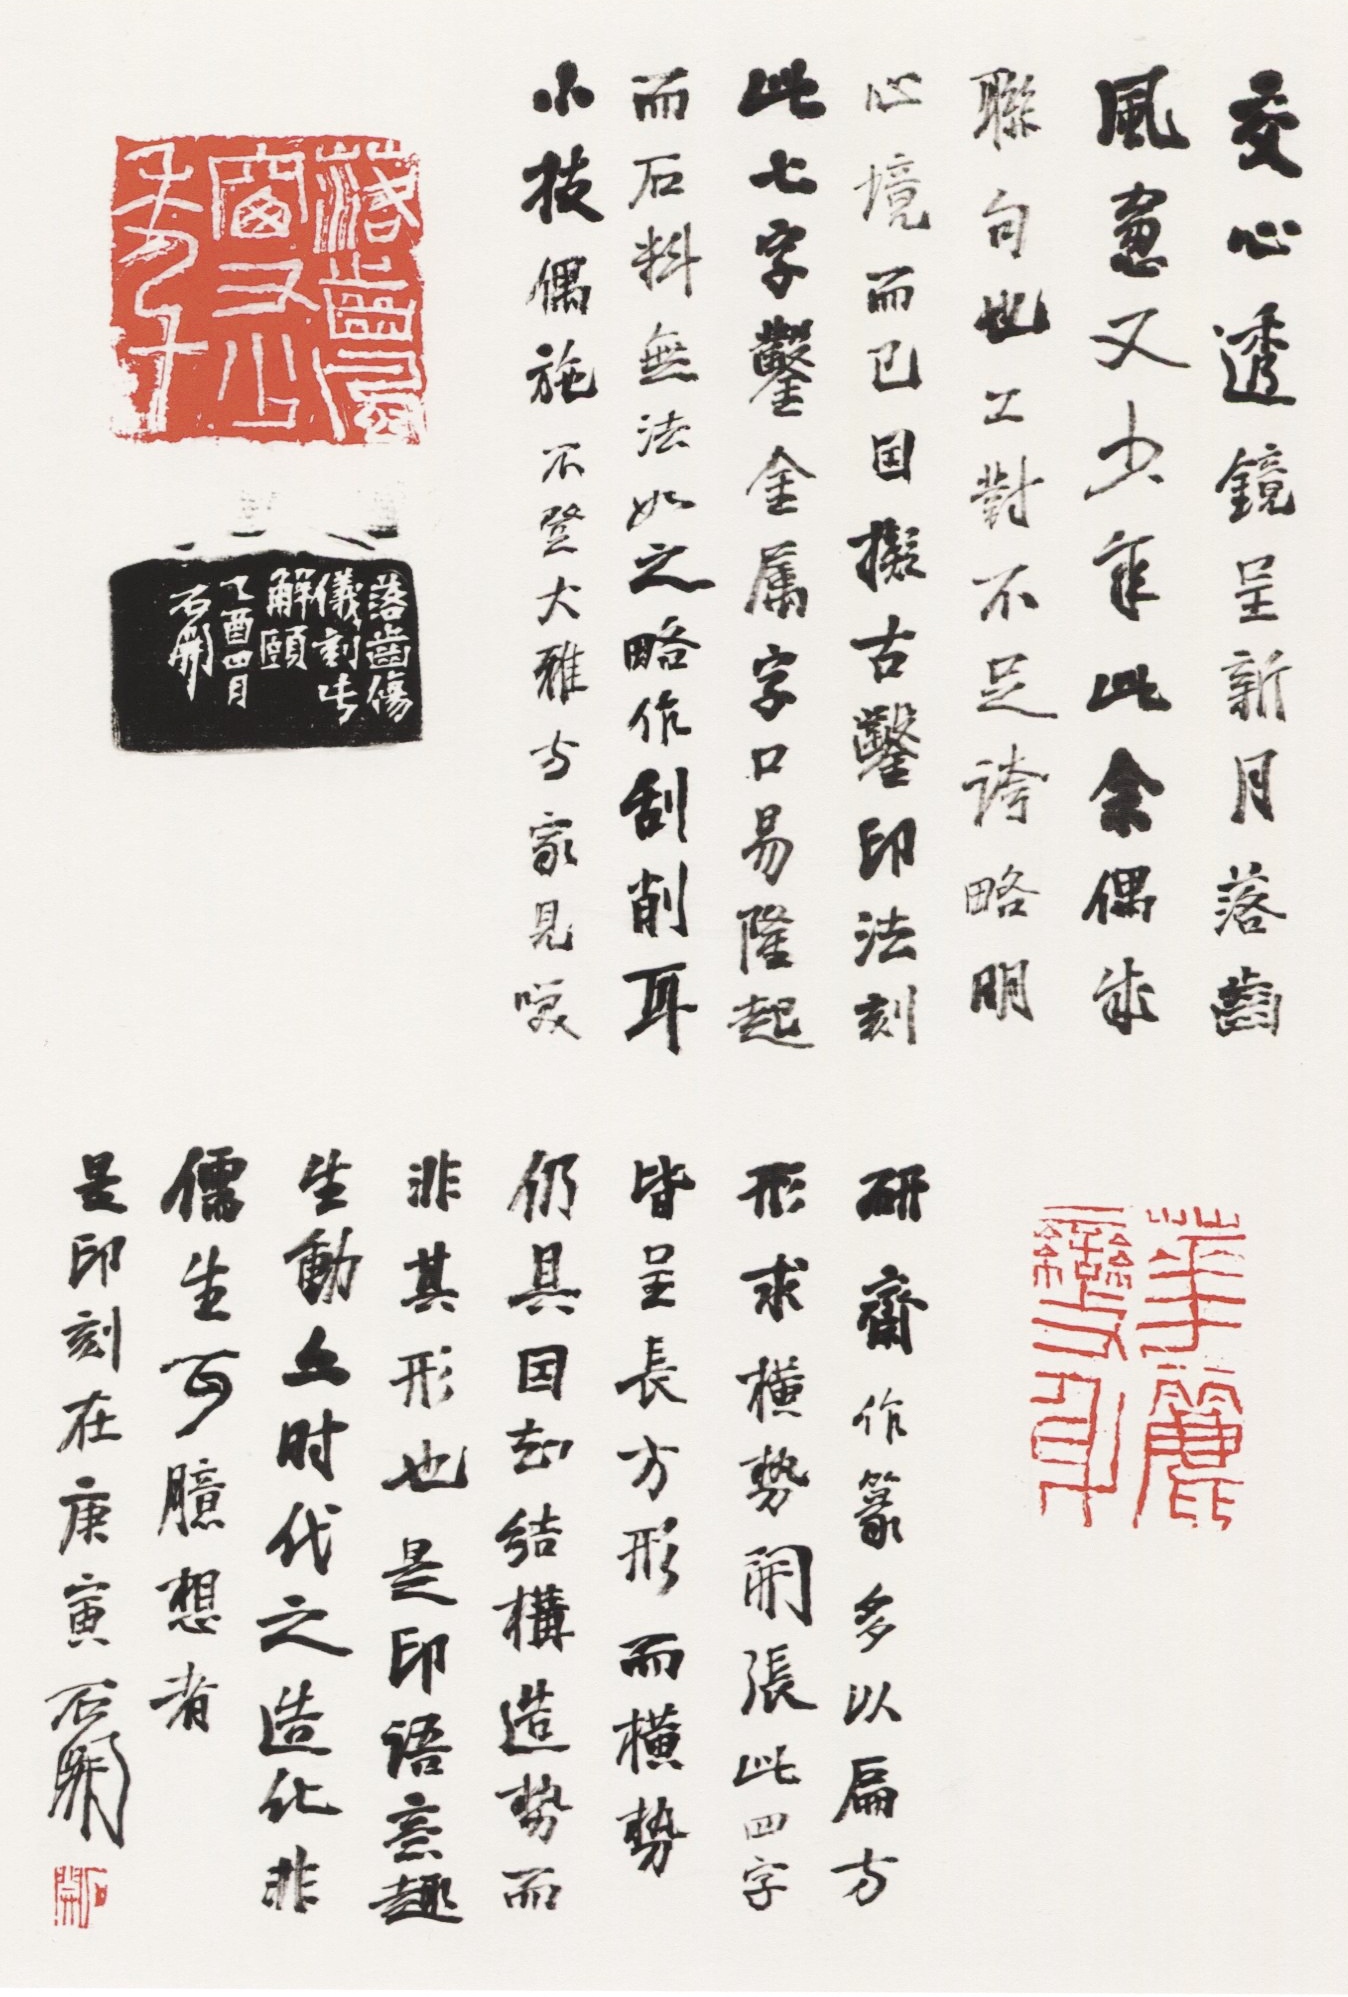 交心透鏡呈新月落齒
風窓又少年此余偶成
聯句也工對不足誇略明
心境而已因擬古鑿印法刻
此七字鑿金属字口易隆起
而石料無法如之略作刮削耳
小技偶施不登大雅方家見笑
落齒風
窗又少
年
落齒傷
儀刻此
解頤
乙酉四月
石開
華麗
轉身
研齋作篆多以扁方
形求横势開張此四字
皆呈長方形而横势
仍具因知结構造势而
非其形也是印语意趣
生動亦时代之造化非
儒生可臆想者
是印刻在庚寅石開
石開